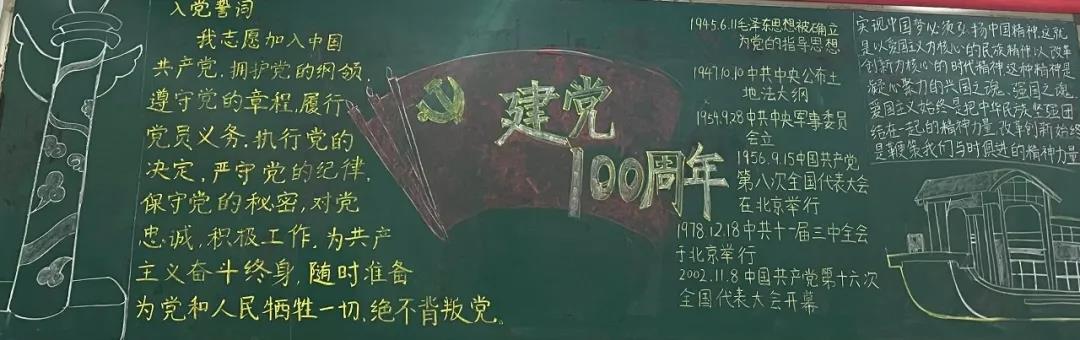 入党誓词
我志愿加入中国
共产党,拥护党的纲领,
遵守党的章程,履行
党员义务,执行党的
决定,严守党的纪律,
保守党的秘密,对党
忠诚,积极工作,为共产
主义奋斗终身,随时准备
为党和人民牺牲一切,绝不背叛党。
建党
100周年
1945.6.11毛泽东思想被确立
为党的指导思想
1947.10.10中共中央公布土
地法大纲
1954.9.28中共中央军事委员
会立
1956.9.15中国共产党
第八次全国代表大会
在北京举行
1978.12.18中共十一届三中全会
于北京举行
2002.11.8中国共产党第十六次
全国代表大会开幕
实现中国梦必须弘扬中国精神,这就
是以爱国主义为核心的民族精神,以改革
创新为核心的时代精神,这种精神是
凝心聚力的兴国之魂、强国之魂,
爱国主义始终是把中华民族坚强团
结在一起的精神力量,改革创新始终
是鞭策我们与时俱进的精神力量